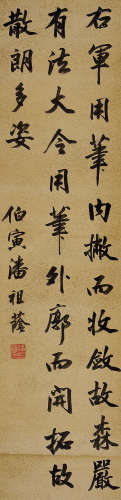 右軍用筆內擫而收斂故森嚴
有法大令用筆外廓而開拓故
散朗多姿
伯寅潘祖蔭